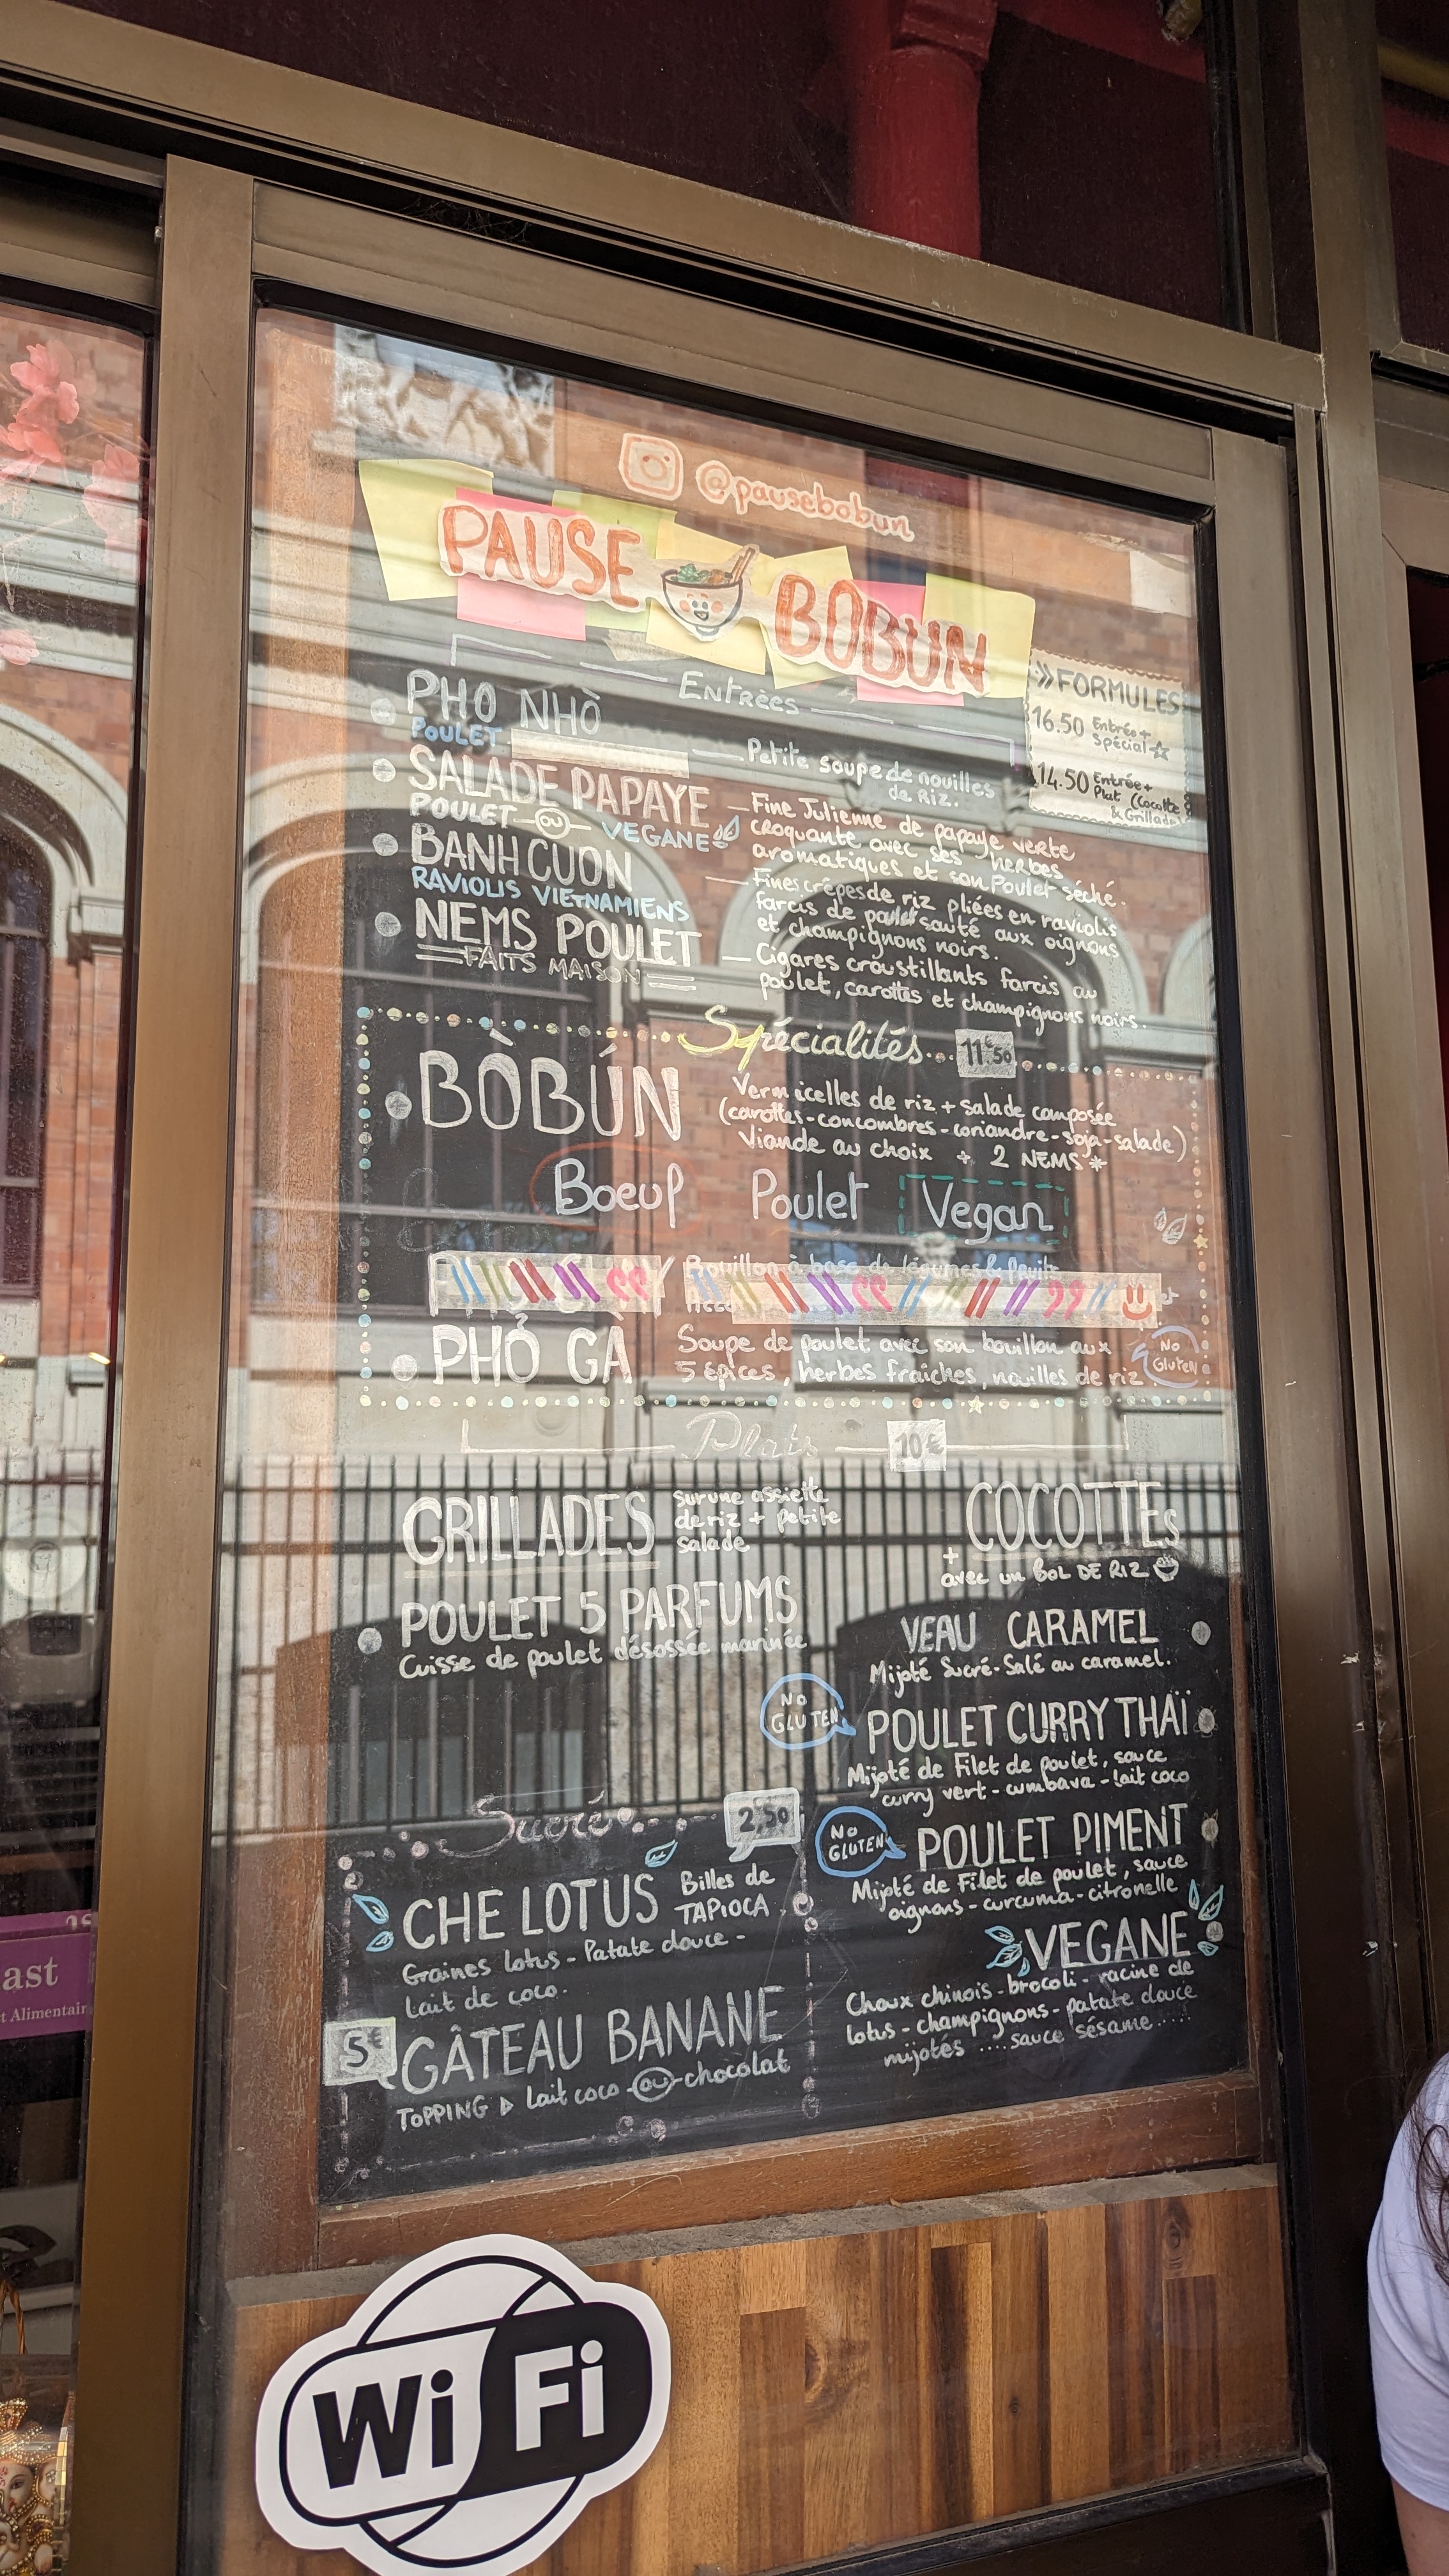 @pausebobun
PAUSE BOBUN
Entrées
» FORMULES
16.50 Entrée +
Spécial ☆
14.50 Entrée +
Plat (Cocotte
& Grillade)
PHO NHÒ
POULET
Petite soupe de nouilles
de Riz.
SALADE PAPAYE
POULET ou VEGANE
Fine Julienne de papaye verte
croquante avec ses herbes
aromatiques et son Poulet séché.
BANH CUON
RAVIOLIS VIETNAMIENS
Fines crêpes de riz pliées en raviolis
farcis de poulet sauté aux oignons
et champignons noirs.
NEMS POULET
FAITS MAISON
Cigares croustillants farcis au
poulet, carottes et champignons noirs.
Spécialités 11€50
BÒBÚN
Vermicelles de riz + salade composée
(carottes - concombres - coriandre - soja - salade)
Viande au choix + 2 NEMS *
Boeuf Poulet Vegan
Bouillon à base de légumes &
PHỞ GÀ
Soupe de poulet avec son bouillon aux
5 épices, herbes fraîches, nouilles de riz
No
Gluten
Plats 10€
GRILLADES
sur une assiette
de riz + petite
salade
POULET 5 PARFUMS
Cuisse de poulet désossée marinée
COCOTTEs
+ avec un BOL DE RIZ
VEAU CARAMEL
Mijoté Sucré-Salé au caramel.
No
GLUTEN
POULET CURRY THAÏ
Mijoté de Filet de poulet, sauce
curry vert - cumbava - lait coco
No
GLUTEN
POULET PIMENT
Mijoté de Filet de poulet, sauce
oignons - curcuma - citronelle
VEGANE
Choux chinois - brocoli - racine de
lotus - champignons - patate douce
mijotés .... sauce sésame.....
Sucré 2.50
CHE LOTUS Billes de
TAPIOCA
Graines lotus - Patate douce -
Lait de coco.
5€ GÂTEAU BANANE
TOPPING ▷ Lait coco ou chocolat
Wi Fi
ast
t Alimentair